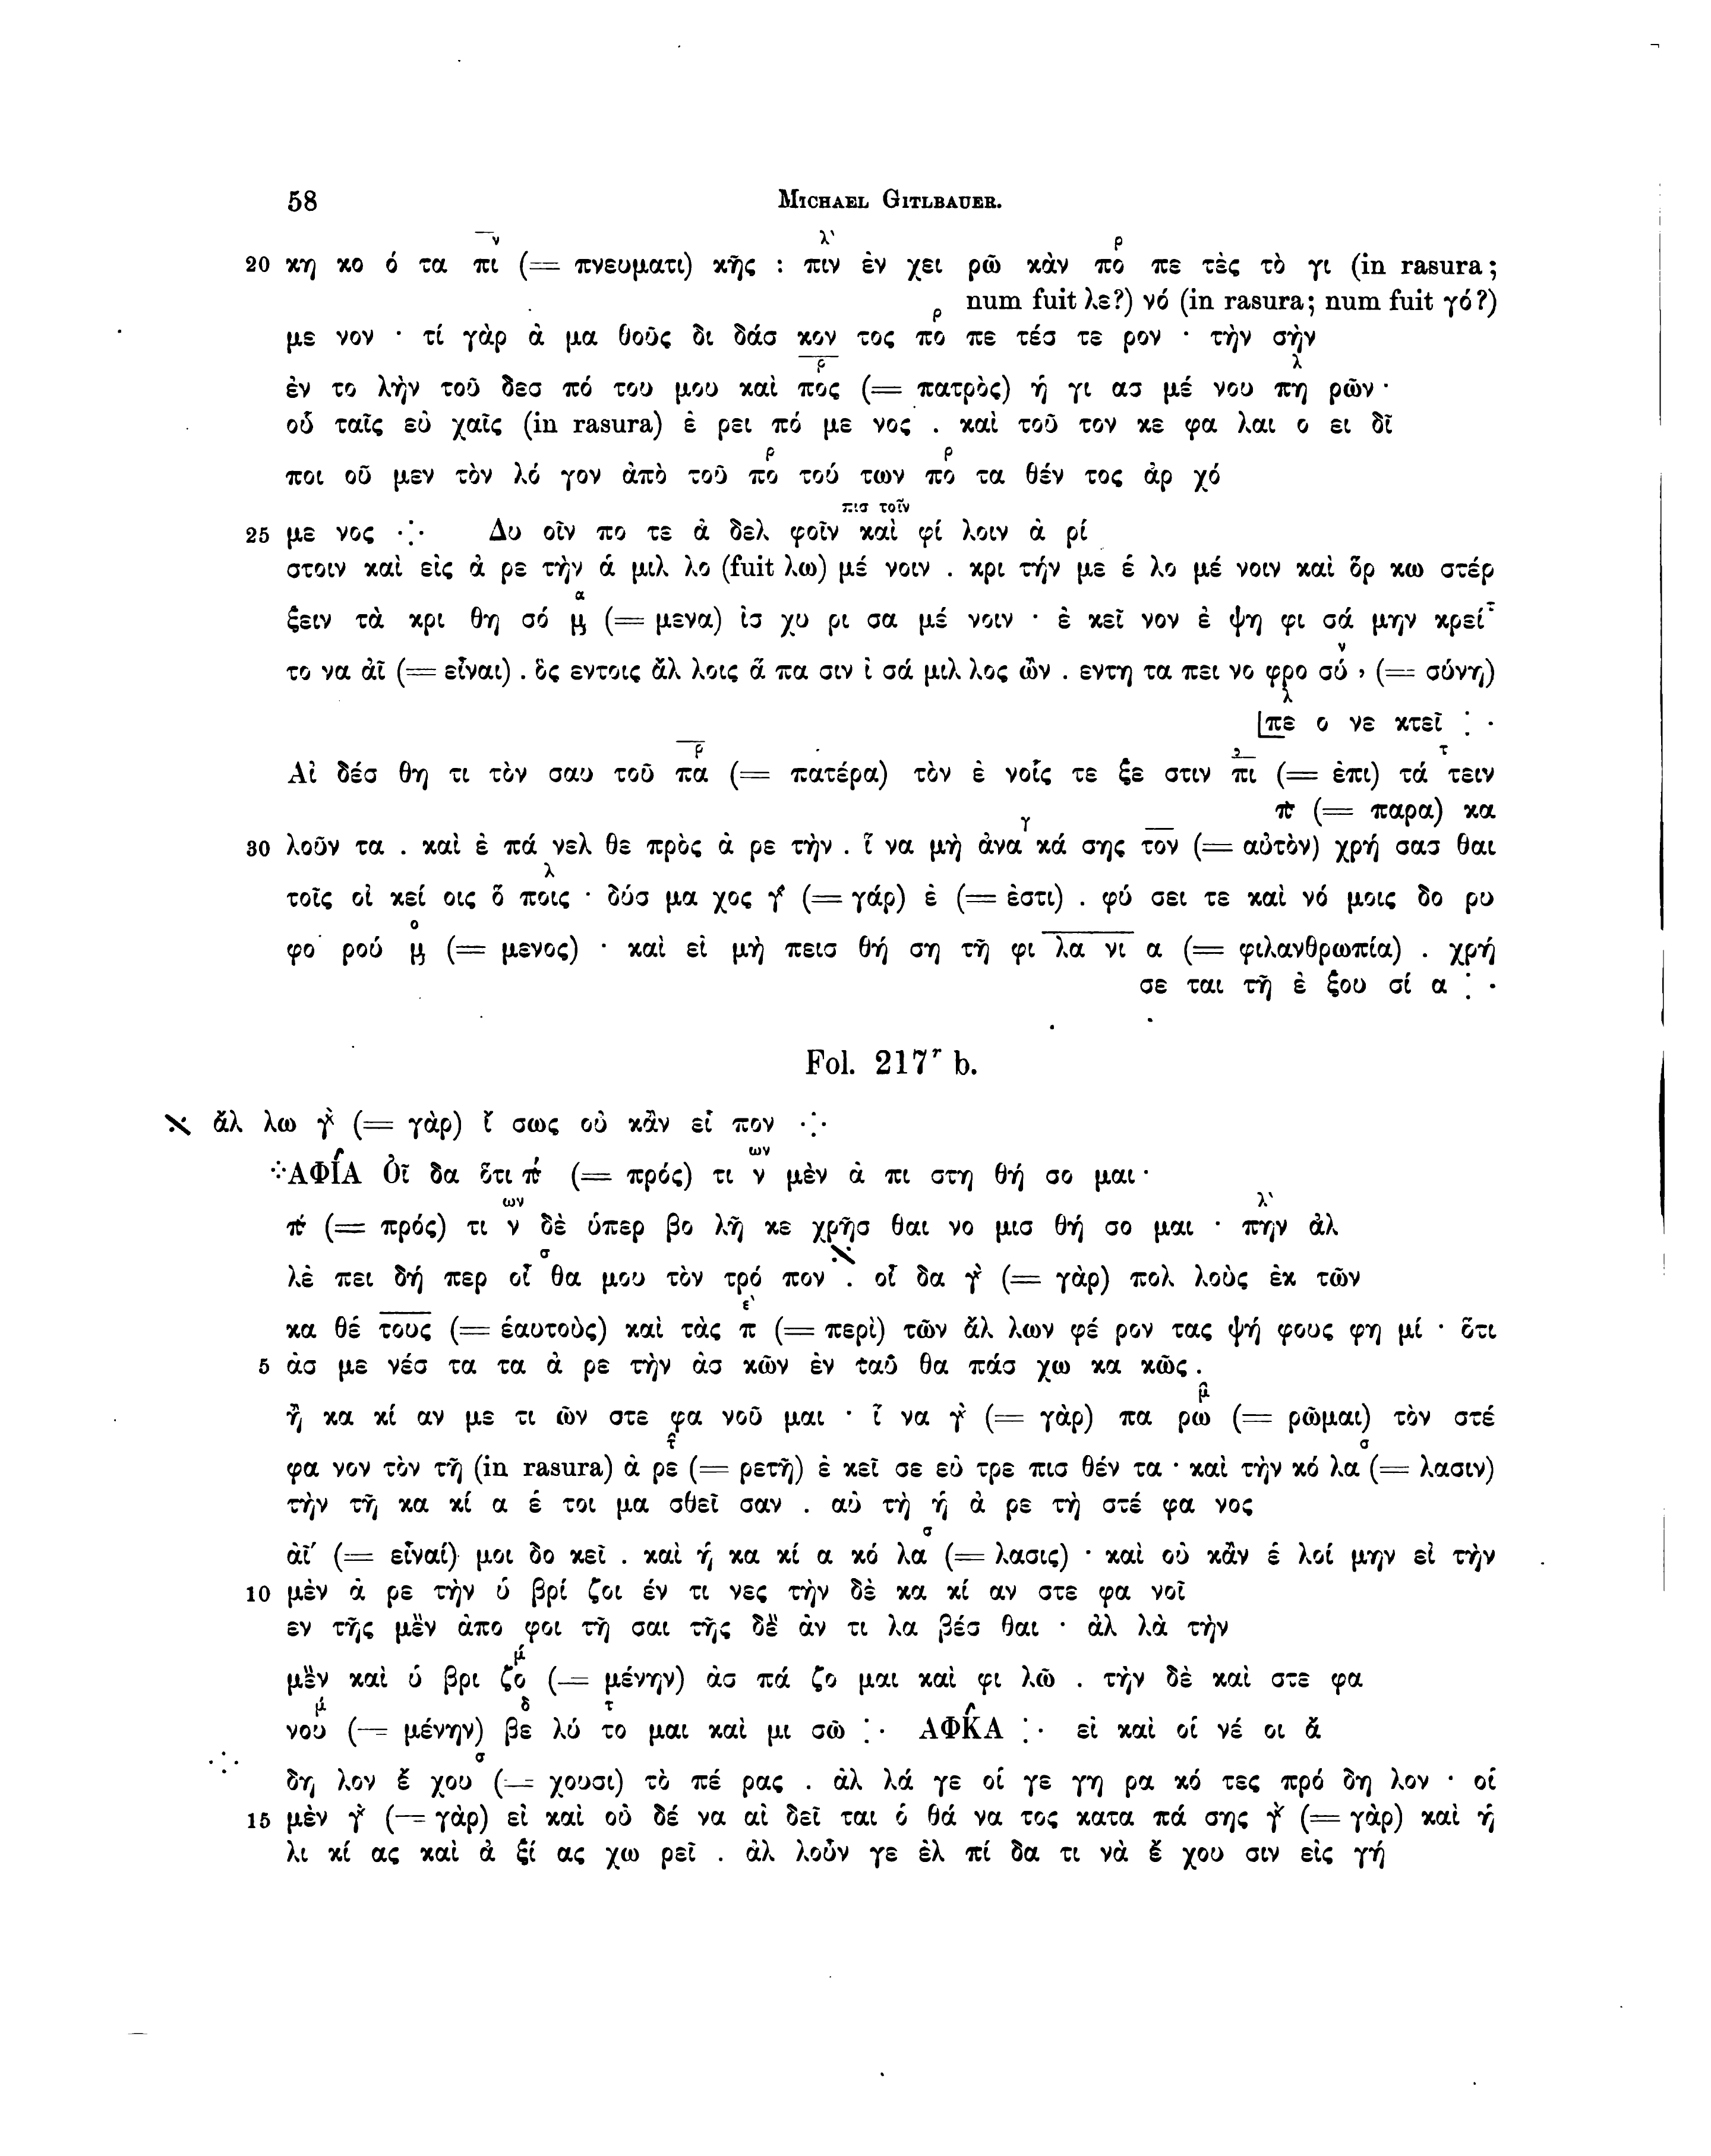 58 MICHAEL GITLBAUER.
20 κη κο ό τα πι̅ν (= πνευματι) κῆς : πινλ` ἐν χει ρῶ κἀν πορ πε τὲς τὸ γι (in rasura;
num fuit λε?) νό (in rasura; num fuit γό?)
με νον · τί γὰρ ἀ μα θοῦς δι δάσ κον τος πορ πε τέσ τε ρον · τὴν σὴν
ἐν το λὴν τοῦ δεσ πό του μου καὶ ποςρ (= πατρὸς) ἡ γι ασ μέ νου πηλ ρῶν ·
οὗ ταῖς εὐ χαῖς (in rasura) ἐ ρει πό με νος . καὶ τοῦ τον κε φα λαι ο ει δῖ
ποι οῦ μεν τὸν λό γον ἀπὸ τοῦ πορ τού των πορ τα θέν τος ἀρ χό
πισ τοῖν
25 με νος ·:· Δυ οῖν πο τε ἀ δελ φοῖν καὶ φί λοιν ἀ ρί
στοιν καὶ εἰς ἀ ρε τὴν ἁ μιλ λο (fuit λω) μέ νοιν . κρι τήν με ἑ λο μέ νοιν καὶ ὅρ κω στέρ
ξειν τὰ κρι θη σό μα (= μενα) ἰσ χυ ρι σα μέ νοιν · ἐ κεῖ νον ἐ ψη φι σά μην κρείτ
το να ἀῖ (= εἶναι) . ὃς εντοις ἄλ λοις ἅ πα σιν ἰ σά μιλ λος ὢν . εντη τα πει νο φρο σύν , (= σύνη)
⌊πελ ο νε κτεῖ :·
Αἰ δέσ θη τι τὸν σαυ τοῦ παρ (= πατέρα) τὸν ἐ νοῖς τε ξε στιν πι (= ἐπι) τάτ τειν
π (= παρα) κα
30 λοῦν τα . καὶ ἐ πά νελ θε πρὸς ἀ ρε τὴν . ἵ να μὴ ἀναγ κά σης τον (= αὐτὸν) χρή σασ θαι
τοῖς οἰ κεί οις ὅ ποιςλ · δύσ μα χος γ (= γάρ) ἐ (= ἐστι) . φύ σει τε καὶ νό μοις δο ρυ
φο ρού μο (= μενος) · καὶ εἰ μὴ πεισ θή ση τῆ φι λα νι α (= φιλανθρωπία) . χρή
σε ται τῆ ἐ ξου σί α :·
Fol. 217r b.
⨯ ἄλ λω γ (= γὰρ) ἴ σως οὐ κἂν εἶ πον ·:·
·:·ΑΦΙΑ Οἶ δα ὅτι π (= πρός) τι νων μὲν ἀ πι στη θή σο μαι ·
π (= πρός) τι νων δὲ ὑπερ βο λῆ κε χρῆσ θαι νο μισ θή σο μαι · πηνλ` ἀλ
λὲ πει δή περ οἶσ θα μου τὸν τρό πον ⨯. οἶ δα γ (= γὰρ) πολ λοὺς ἐκ τῶν
κα θέ τους (= ἑαυτοὺς) καὶ τὰς πε` (= περὶ) τῶν ἄλ λων φέ ρον τας ψή φους φη μί · ὅτι
5 ἀσ με νέσ τα τα ἀ ρε τὴν ἀσ κῶν ἐν ταῦ θα πάσ χω κα κῶς .
ἢ κα κί αν με τι ὼν στε φα νοῦ μαι · ἵ να γ (= γὰρ) πα ρωμ (= ρῶμαι) τὸν στέ
φα νον τὸν τῆ (in rasura) ἀ ρετ (= ρετῆ) ἐ κεῖ σε εὐ τρε πισ θέν τα · καὶ τὴν κό λασ (= λασιν)
τὴν τῆ κα κί α ἑ τοι μα σθεῖ σαν . αὐ τὴ ἡ ἀ ρε τὴ στέ φα νος
ἀῖ´ (= εἶναί) μοι δο κεῖ . καὶ ἡ κα κί α κό λασ (= λασις) · καὶ οὐ κἂν ἑ λοί μην εἰ τὴν
10 μὲν ἀ ρε τὴν ὑ βρί ζοι έν τι νες τὴν δὲ κα κί αν στε φα νοῖ
εν τῆς μὲν ἀπο φοι τῆ σαι τῆς δὲ ἀν τι λα βέσ θαι · ἀλ λὰ τὴν
μὲν καὶ ὑ βρι ζομ (= μένην) ἀσ πά ζο μαι καὶ φι λῶ . τὴν δὲ καὶ στε φα
νουμ (= μένην) βεδ λύτ το μαι καὶ μι σῶ :· ΑΦΚΑ :· εἰ καὶ οἱ νέ οι ἄ
·:· δη λον ἔ χουσ (= χουσι) τὸ πέ ρας . ἀλ λά γε οἵ γε γη ρα κό τες πρό δη λον · οἱ
15 μὲν γ (= γὰρ) εἰ καὶ οὐ δέ να αἰ δεῖ ται ὁ θά να τος κατα πά σης γ (= γὰρ) καὶ ἡ
λι κί ας καὶ ἀ ξί ας χω ρεῖ . ἀλ λοὖν γε ἐλ πί δα τι νὰ ἔ χου σιν εἰς γή